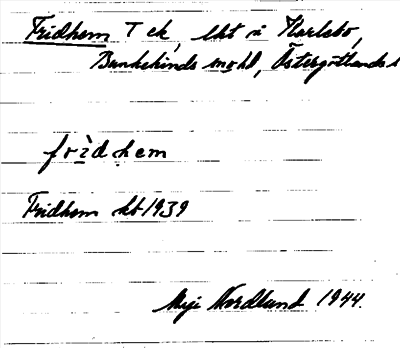 Fridhem T ek, lht u Karlsbo,
Bankekinds sn o hd, Östergötlands l
frìdhem
Fridhem kb 1939
Nordlund 1944.